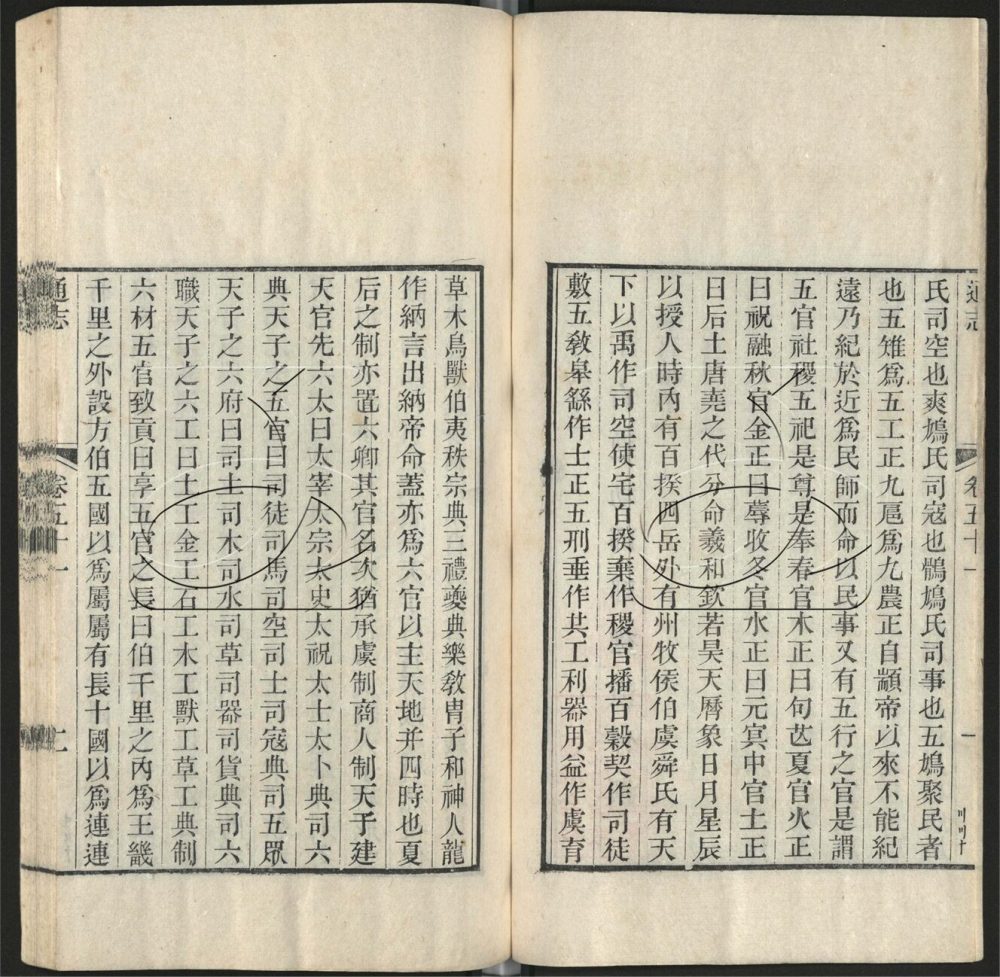 通志
卷五十一
氏司空也爽鳩氏司寇也鶻鳩氏司事也五鳩聚民者
也五雉爲五工正九扈爲九農正自顓帝以來不能紀
遠乃紀於近爲民師而命以民事又有五行之官是謂
五官社稷五祀是尊是奉春官木正曰句芒夏官火正
曰祝融秋官金正曰蓐收冬官水正曰元冥中官土正
曰后土唐堯之代分命羲和欽若昊天曆象日月星辰
以授人時內有百揆四岳外有州牧侯伯虞舜氏有天
下以禹作司空使宅百揆棄作稷官播百穀契作司徒
敷五敎皋繇作士正五刑垂作共工利器用益作虞育
草木鳥獸伯夷秩宗典三禮夔典樂敎冑子和神人龍
作納言出納帝命蓋亦爲六官以主天地并四時也夏
后之制亦置六卿其官名次猶承虞制商人制天子建
天官先六太曰太宰太宗太史太祝太士太卜典司六
典天子之五官曰司徒司馬司空司士司寇典司五眾
天子之六府曰司土司木司水司草司器司貨典司六
職天子之六工曰土工金工石工木工獸工草工典制
六材五官致貢曰享五官之長曰伯千里之內爲王畿
千里之外設方伯五國以爲屬屬有長十國以爲連連
通志
卷五十一